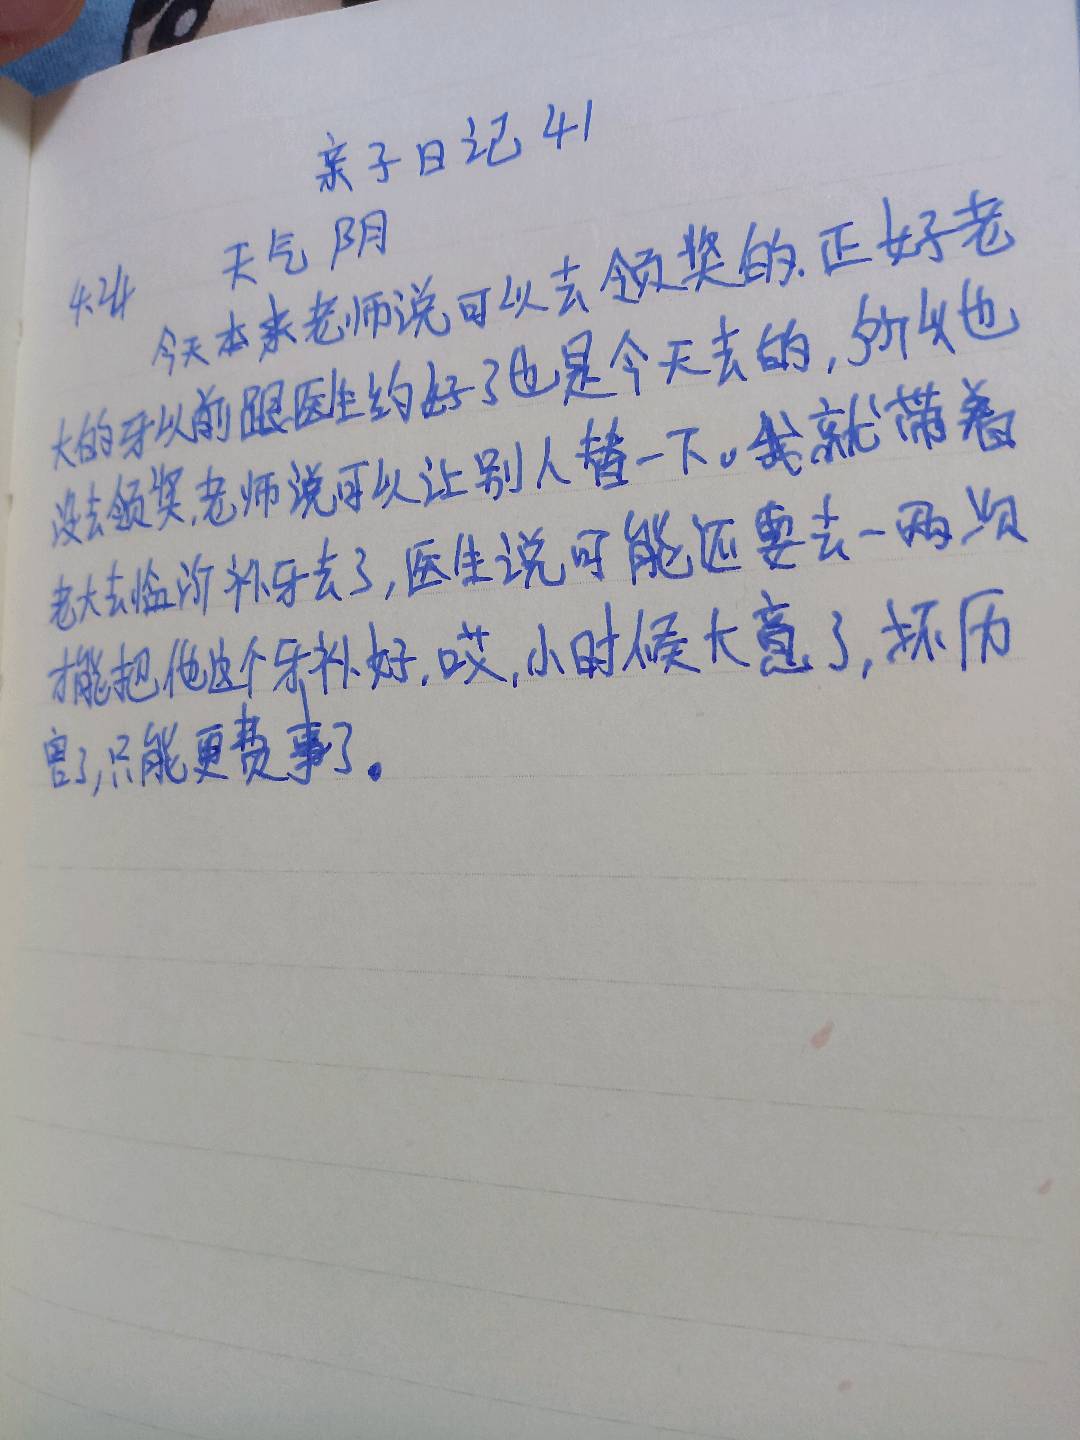 亲子日记41
4.24 天气 阴
今天本来老师说可以去领奖的.正好老
大的牙以前跟医生约好了也是今天去的,所以也
没去领奖,老师说可以让别人替一下。我就带着
老大去临沂补牙去了,医生说可能还要去一两次
才能把他这个牙补好.哎,小时候大意了,坏历
害了,只能更费事了。